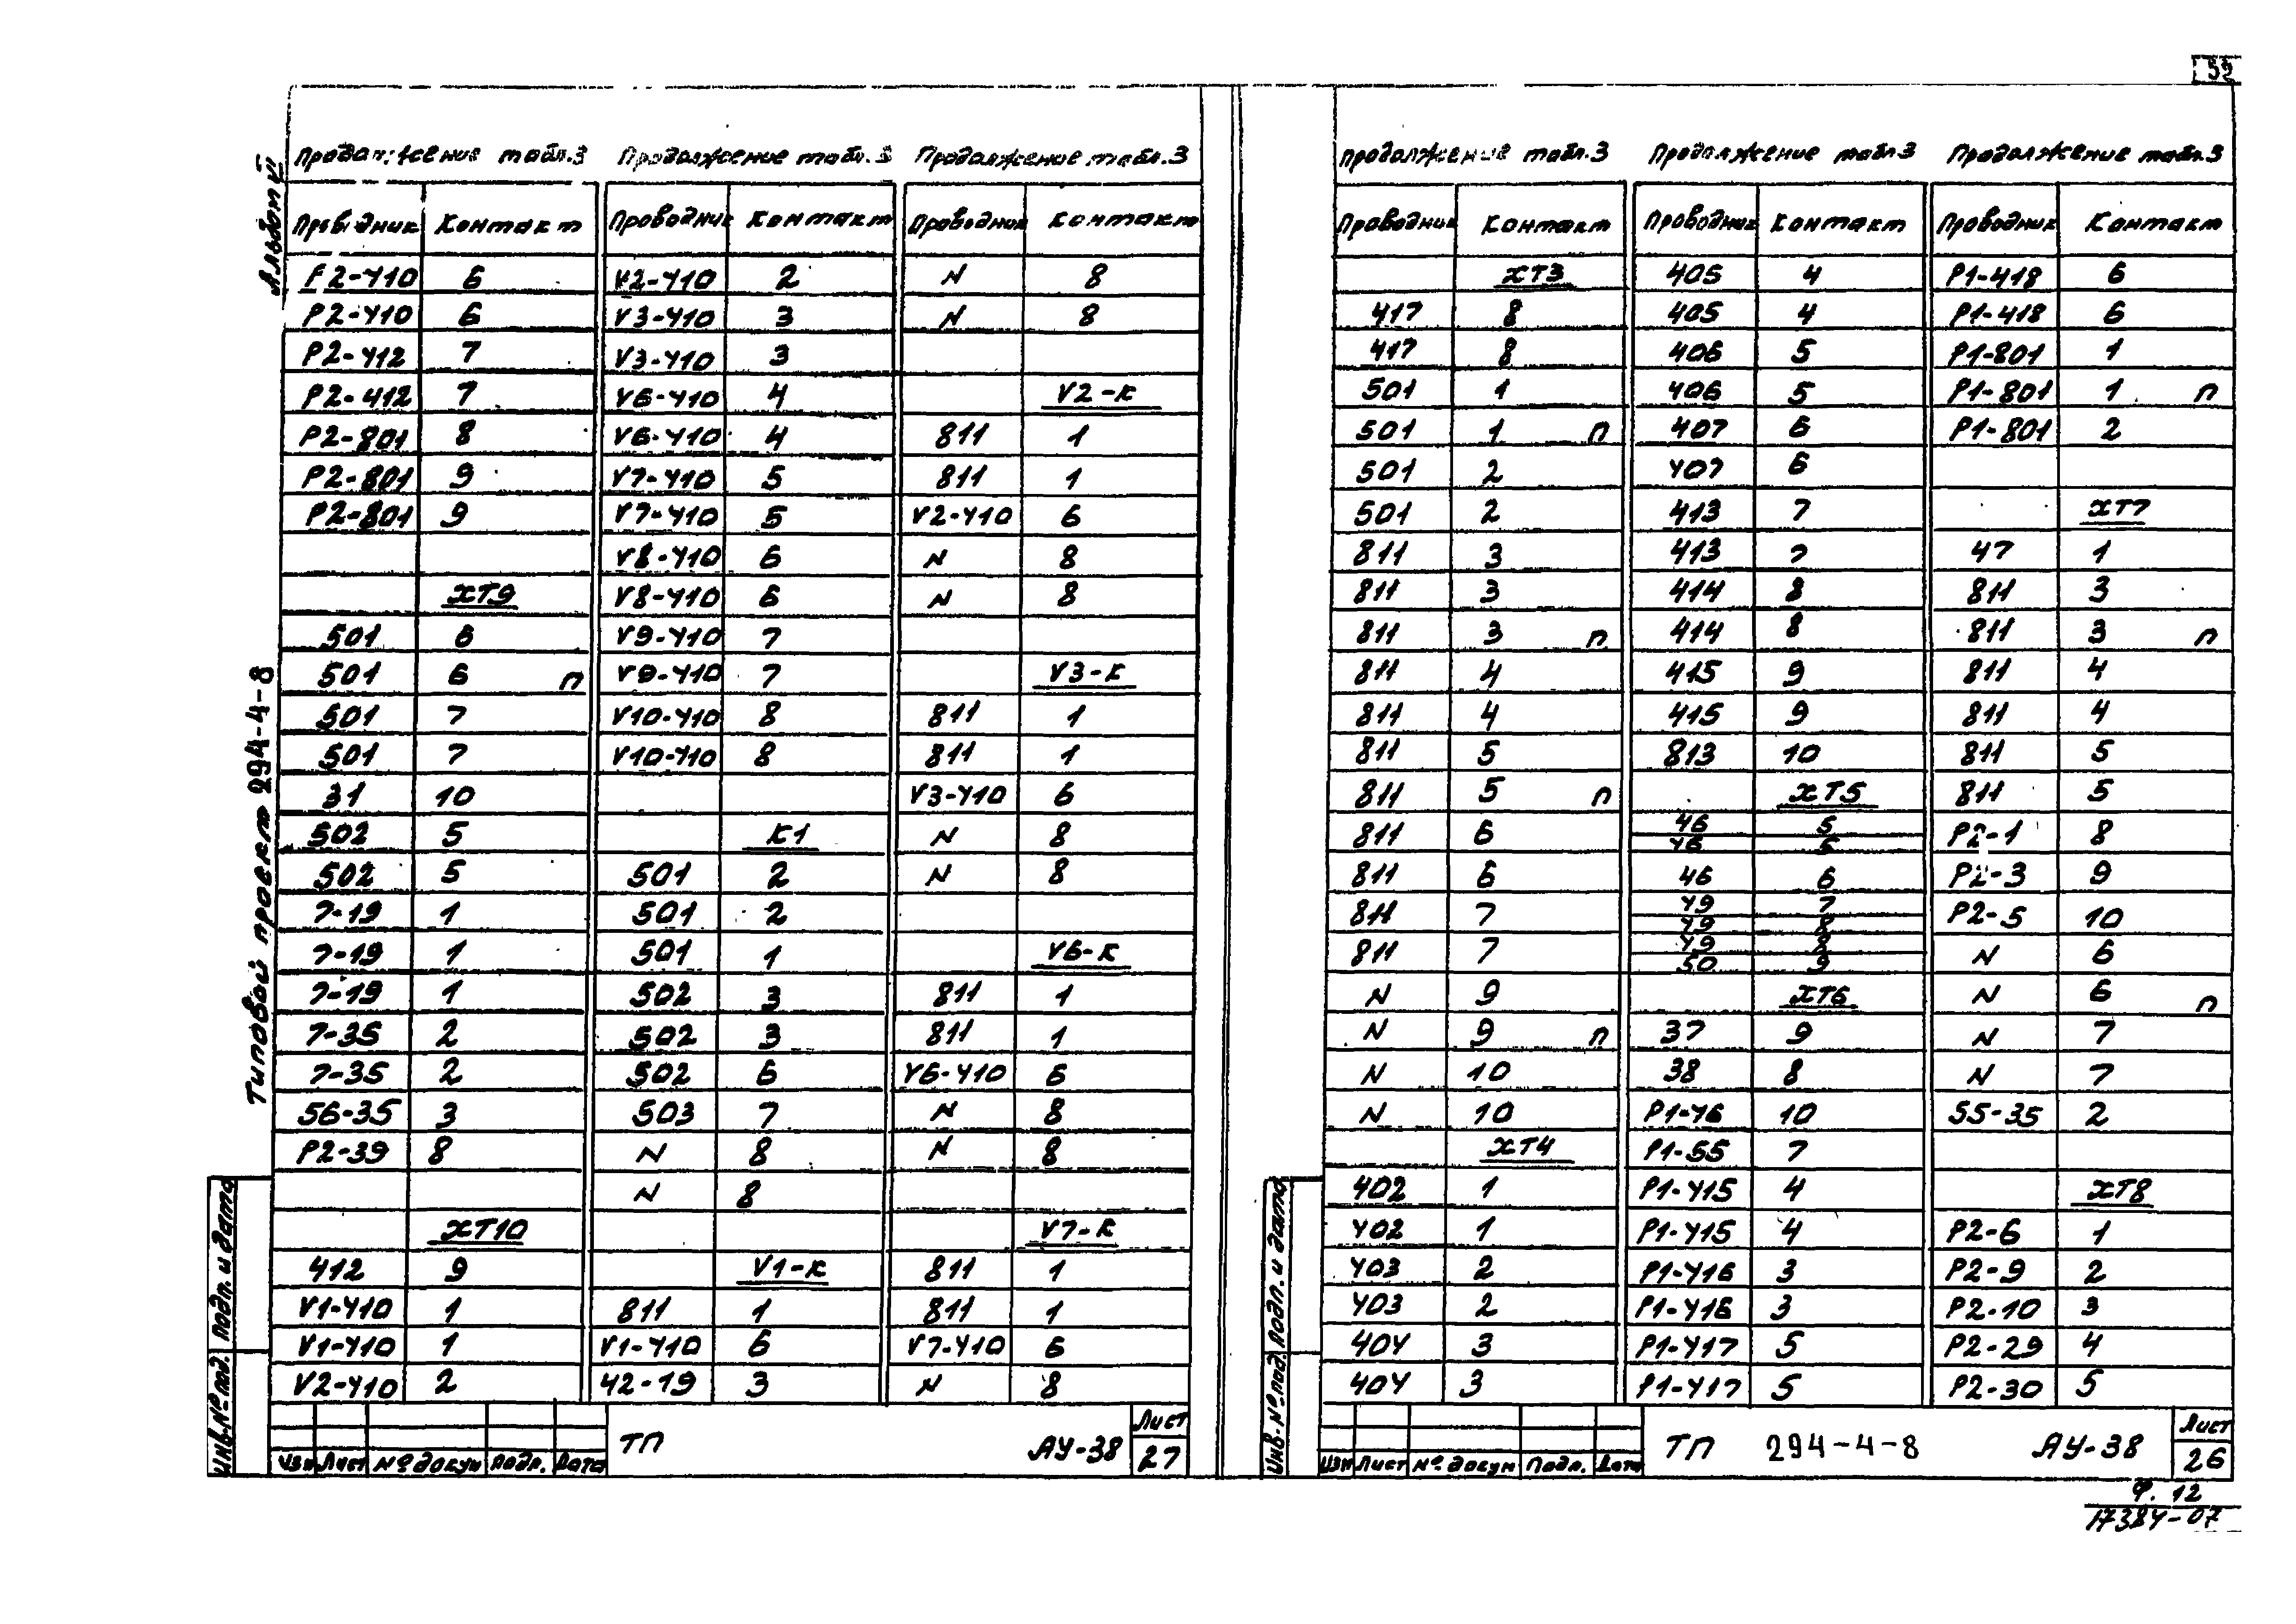 39
Альбом VI
Типовой проект 294-4-8
Продолжение табл.3 Продолжение табл.3 Продолжение табл.3
Проводник Контакт Проводник Контакт Проводник Контакт
P2-410 6 V2-410 2 N 8
P2-410 6 V3-410 3 N 8
P2-412 7 V3-410 3
P2-412 7 V6-410 4 V2-К
P2-801 8 V6-410 4 811 1
P2-801 9 V7-410 5 811 1
P2-801 9 V7-410 5 V2-410 6
V8-410 6 N 8
ХТ9 V8-410 6 N 8
501 6 V9-410 7
501 6 п V9-410 7 V3-К
501 7 V10-410 8 811 1
501 7 V10-410 8 811 1
31 10 V3-410 6
502 5 К1 N 8
502 5 501 2 N 8
7-19 1 501 2
7-19 1 501 1 V6-К
7-19 1 502 3 811 1
7-35 2 502 3 811 1
7-35 2 502 6 V6-410 6
56-35 3 503 7 N 8
P2-39 8 N 8 N 8
N 8
ХТ10 V7-К
412 9 V1-К 811 1
V1-410 1 811 1 811 1
V1-410 1 V1-410 6 V7-410 6
V2-410 2 42-19 3 N 8
Инв.№ под. Подп. и дата
Изм Лист № докум Подп. Дата
ТП АУ-38 Лист 27
Продолжение табл.3 Продолжение табл 3 Продолжение табл.3
Проводник Контакт Проводник Контакт Проводник Контакт
ХТ3 405 4 P1-418 6
417 8 405 4 P1-418 6
417 8 406 5 P1-801 1
501 1 406 5 P1-801 1 п
501 1 п 407 6 P1-801 2
501 2 407 6
501 2 413 7 ХТ7
811 3 413 7 47 1
811 3 414 8 811 3
811 3 п 414 8 811 3 п
811 4 415 9 811 4
811 4 415 9 811 4
811 5 813 10 811 5
811 5 п ХТ5 811 5
811 6 46 5 P2-1 8
46 5
811 6 46 6 P2-3 9
811 7 49 7 P2-5 10
49 8
811 7 49 8 N 6
50 9
N 9 ХТ6 N 6 п
N 9 п 37 9 N 7
N 10 38 8 N 7
N 10 P1-46 10 55-35 2
ХТ4 P1-55 7
402 1 P1-415 4 ХТ8
402 1 P1-415 4 P2-6 1
403 2 P1-416 3 P2-9 2
403 2 P1-416 3 P2-10 3
404 3 P1-417 5 P2-29 4
404 3 P1-417 5 P2-30 5
Инв.№ под. Подп. и дата
Изм Лист № докум Подп. Дата
ТП 294-4-8 АУ-38 Лист 26
Ф. 12
17384-07